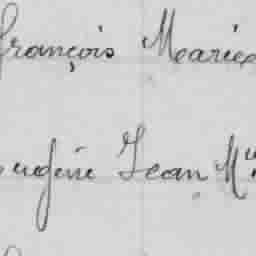 françois Marie
eugène Jean M